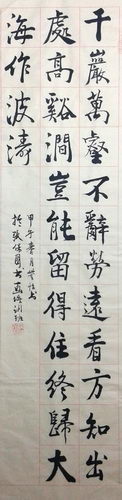 千巖萬壑不辭勞遠看方知出
處高谿澗豈能留得住終歸大
海作波濤
甲午春月
於張
書
培訓班